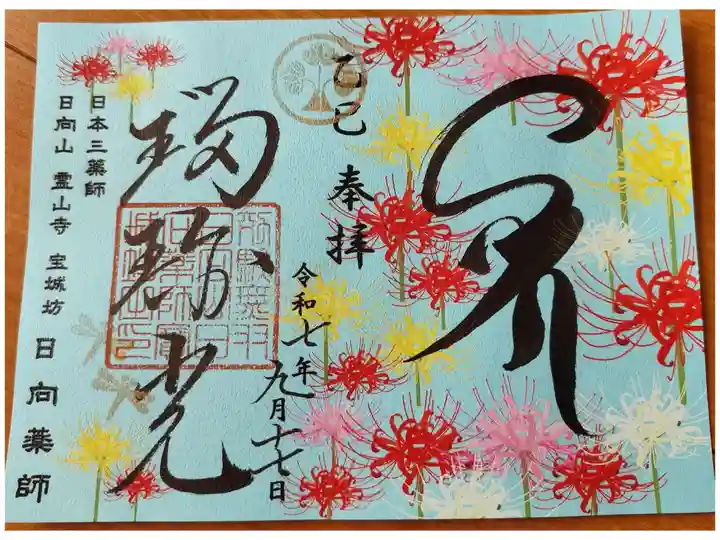 乙巳 奉拝
令和七年
九月十七日
瑠璃光
日本三薬師
日向山 霊山寺 宝城坊
日向薬師